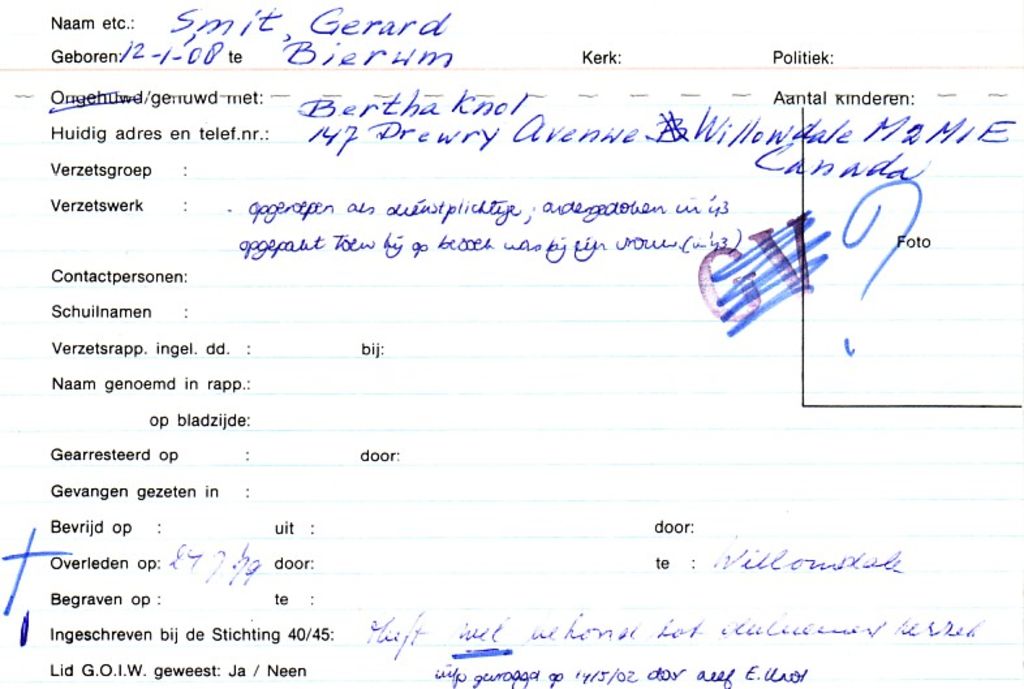 Naam etc.: Smit, Gerard
Geboren: 12-1-08 te Bierum Kerk: Politiek:
Ongehuwd/gehuwd met: Bertha Knol Aantal kinderen:
Huidig adres en telef.nr.: 147 Drewry Avenue Willowdale M2M1E
Canada
Verzetsgroep :
Verzetswerk : - opgeroepen als dienstplichtige; ondergedoken in '43
opgepakt toen hij op bezoek was bij zijn vrouw. (in '43)
GV
?
Foto
Contactpersonen:
Schuilnamen :
Verzetsrapp. ingel. dd. : bij:
Naam genoemd in rapp.:
op bladzijde:
Gearresteerd op : door:
Gevangen gezeten in :
Bevrijd op : uit : door:
Overleden op: 24 7 door: te : Willowdale
Begraven op : te :
Ingeschreven bij de Stichting 40/45: Heeft wel behoord tot verzet
Lid G.O.I.W. geweest: Ja / Neen op 14/5/02 door E. Knol